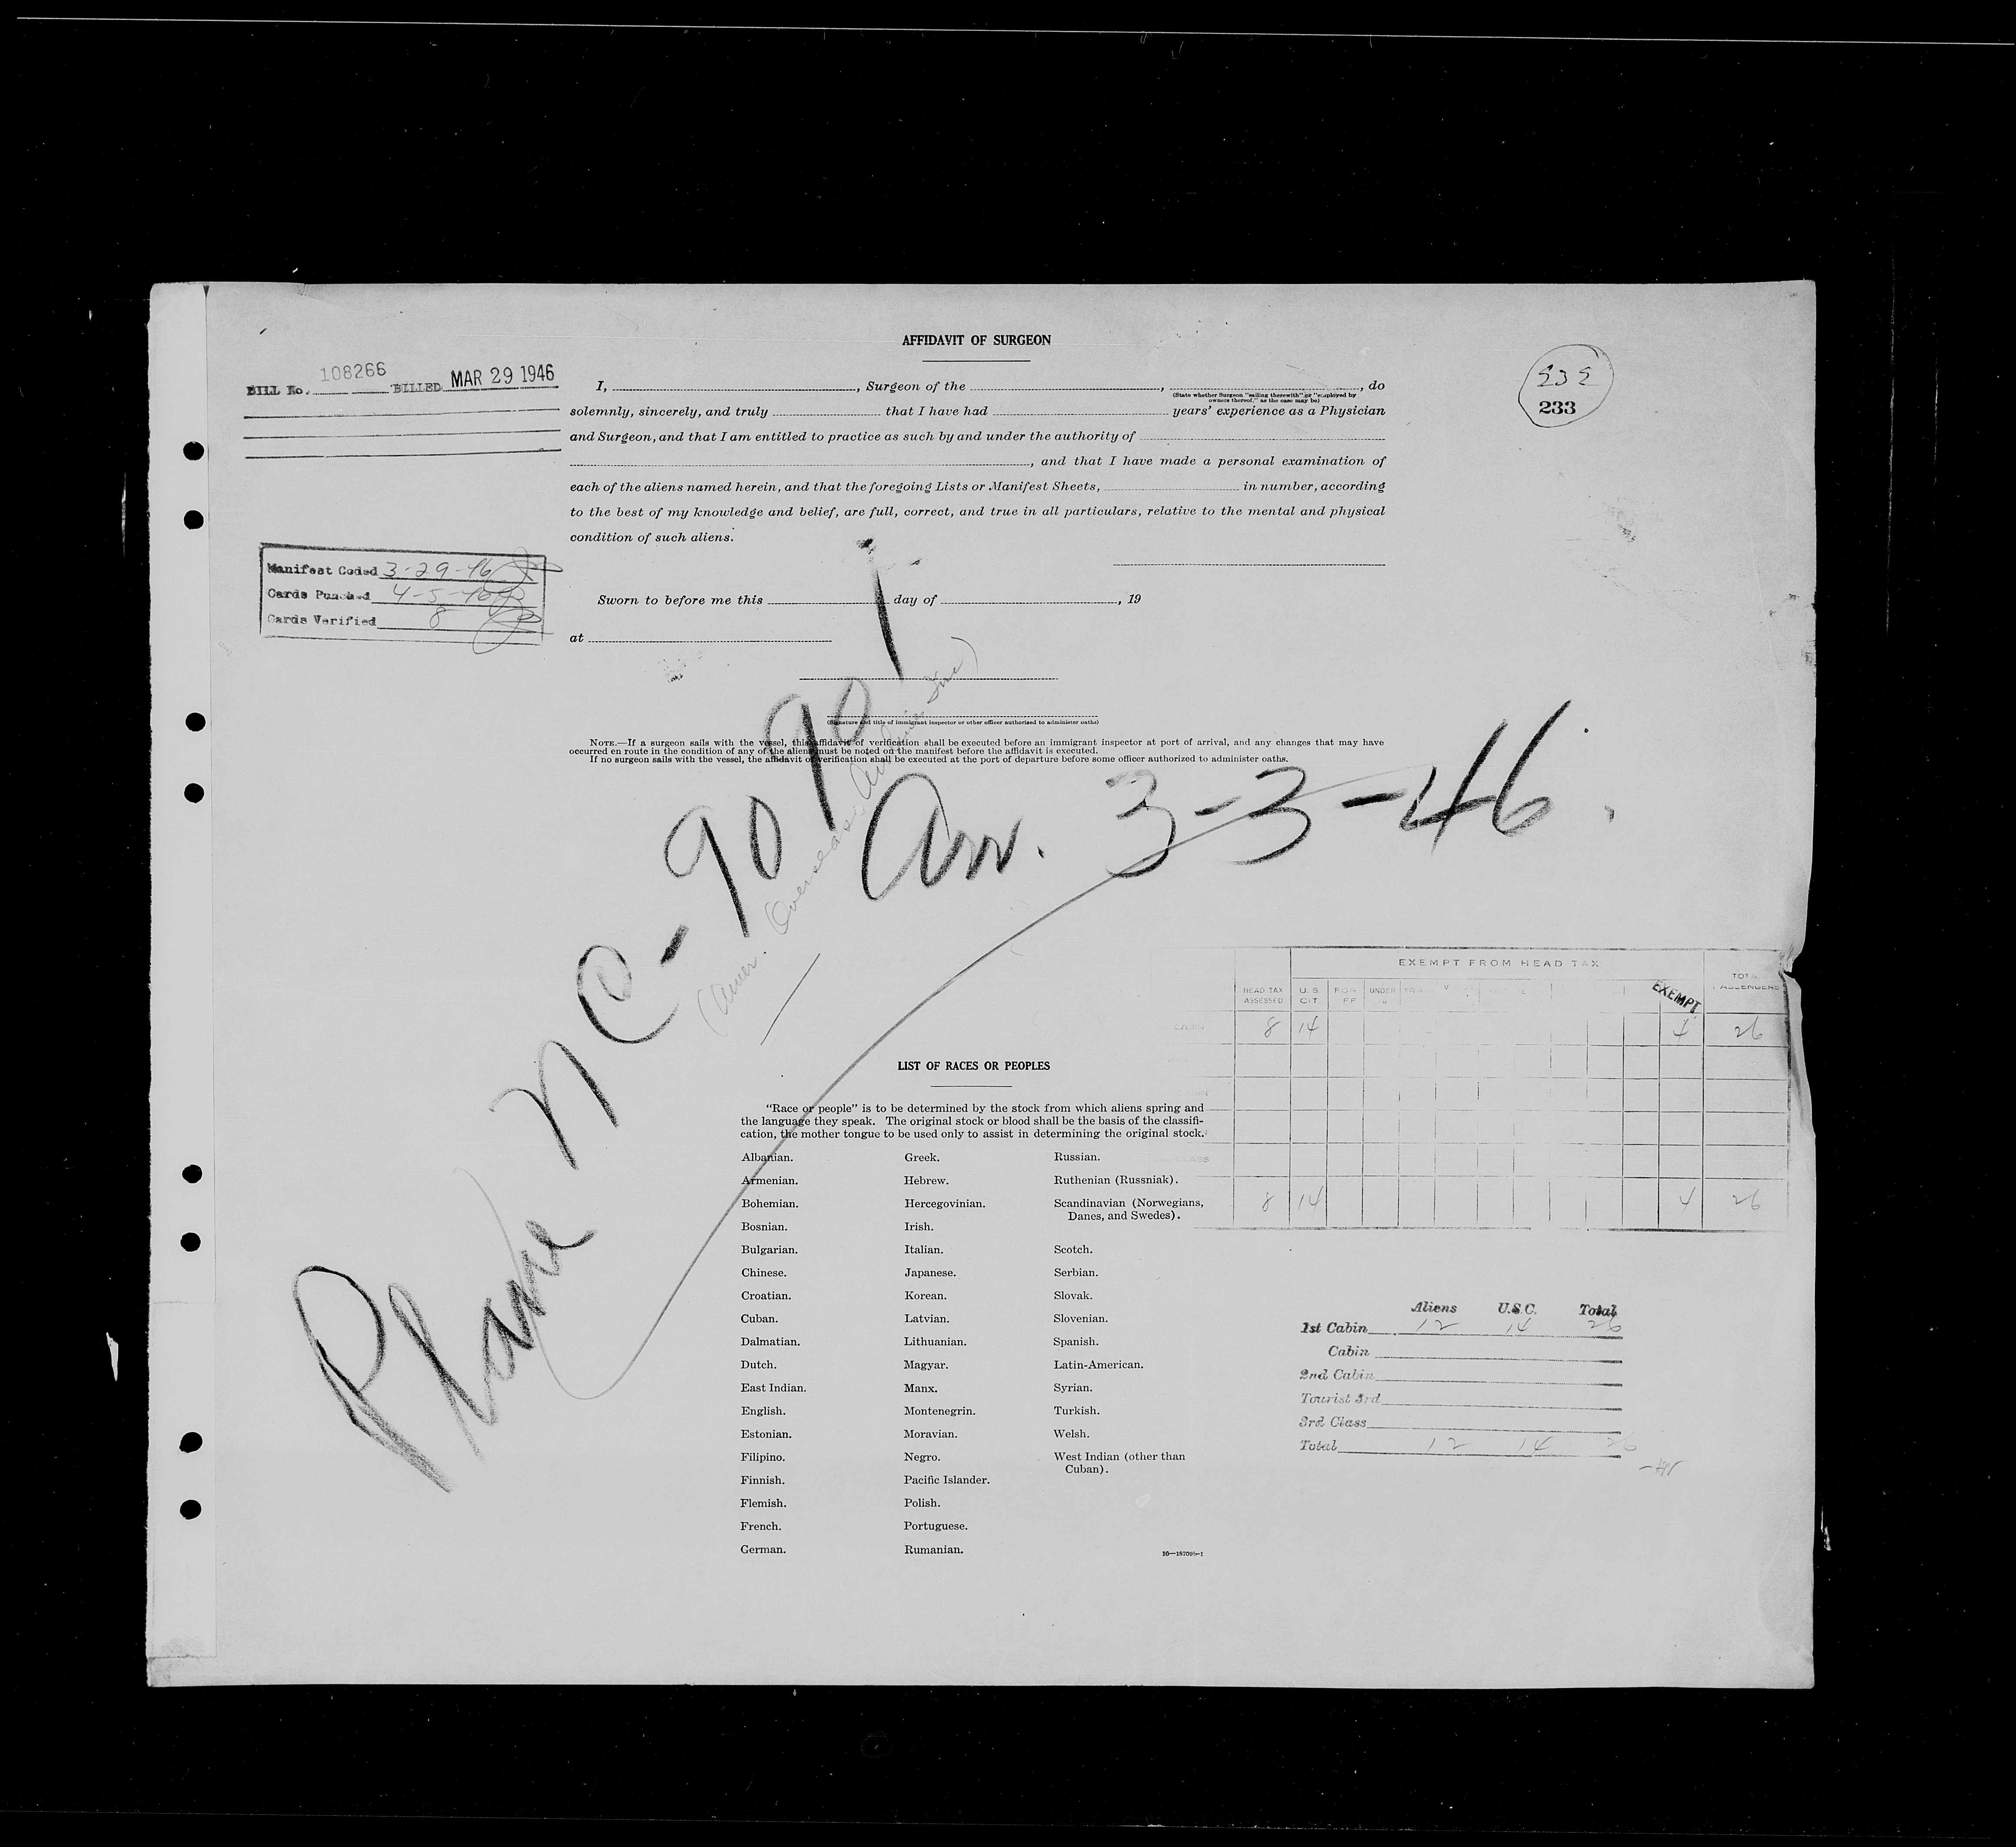 AFFIDAVIT OF SURGEON
BILL No. 108266 BILLED MAR 29 1946
I, , Surgeon of the , , do
(State whether Surgeon "sailing therewith" or "employed by
owners thereof," as the case may be)
solemnly, sincerely, and truly that I have had years' experience as a Physician
and Surgeon, and that I am entitled to practice as such by and under the authority of
, and that I have made a personal examination of
each of the aliens named herein, and that the foregoing Lists or Manifest Sheets, in number, according
to the best of my knowledge and belief, are full, correct, and true in all particulars, relative to the mental and physical
condition of such aliens.
233
Manifest Coded 3-29-46
Cards Punched 4-5-46
Cards Verified 8
Sworn to before me this day of , 19
at
(Signature and title of immigrant inspector or other officer authorized to administer oaths)
NOTE.—If a surgeon sails with the vessel, this affidavit of verification shall be executed before an immigrant inspector at port of arrival, and any changes that may have
occurred en route in the condition of any of the aliens must be noted on the manifest before the affidavit is executed.
If no surgeon sails with the vessel, the affidavit of verification shall be executed at the port of departure before some officer authorized to administer oaths.
Plane NC-90901
(Amer. Overseas Airlines Inc)
Arr. 3-3-46.
EXEMPT FROM HEAD TAX
HEAD TAX ASSESSED U. S. CIT. UNDER 16 EXEMPT TOTAL PASSENGERS
CABIN 8 14 4 26
8 14 4 26
LIST OF RACES OR PEOPLES
"Race or people" is to be determined by the stock from which aliens spring and
the language they speak. The original stock or blood shall be the basis of the classifi-
cation, the mother tongue to be used only to assist in determining the original stock.
Albanian.
Armenian.
Bohemian.
Bosnian.
Bulgarian.
Chinese.
Croatian.
Cuban.
Dalmatian.
Dutch.
East Indian.
English.
Estonian.
Filipino.
Finnish.
Flemish.
French.
German.
Greek.
Hebrew.
Hercegovinian.
Irish.
Italian.
Japanese.
Korean.
Latvian.
Lithuanian.
Magyar.
Manx.
Montenegrin.
Moravian.
Negro.
Pacific Islander.
Polish.
Portuguese.
Rumanian.
Russian.
Ruthenian (Russniak).
Scandinavian (Norwegians,
Danes, and Swedes).
Scotch.
Serbian.
Slovak.
Slovenian.
Spanish.
Latin-American.
Syrian.
Turkish.
Welsh.
West Indian (other than
Cuban).
Aliens U.S.C. Total
1st Cabin 12 14 26
Cabin
2nd Cabin
Tourist 3rd
3rd Class
Total 12 14 26